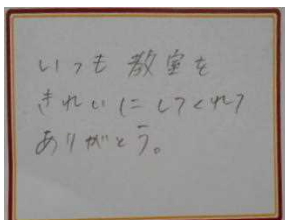 いつも教室を
きれいにしてくれて
ありがとう。